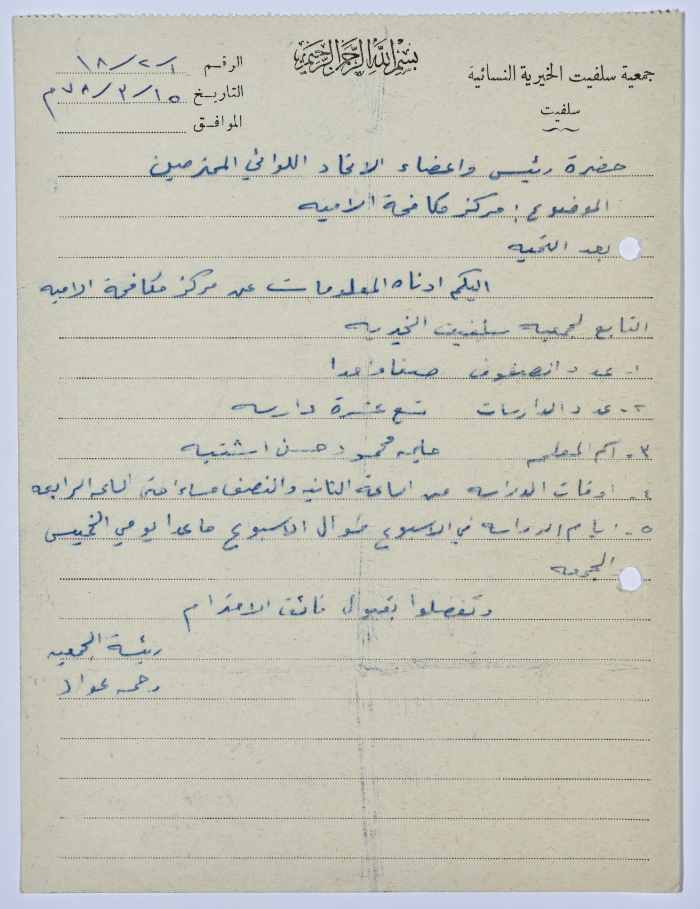 بسم الله الرحمن الرحيم
جمعية سلفيت الخيرية النسائية
سلفيت
الرقم ١/٢/١٨
التاريخ ١٥/٣/٧٨م
الموافق
حضرة رئيس واعضاء الاتحاد اللوائي المحترمين
الموضوع: مركز مكافحة الاميه
بعد التحيه
اليكم ادناه المعلومات عن مركز مكافحة الاميه
التابع لجمعيه سلفيت الخيريه
١- عدد الصفوف صفا واحدا
٢- عدد الدارسات تسع عشرة دارسه
٣- اسم المعلمه حليمه محمود حسن اشتيه
٤- اوقات الدراسه من الساعة الثانيه والنصف مساءا حتى الساعه الرابعه
٥- ايام الدراسه في الاسبوع طوال الاسبوع ما عدا يومي الخميس
والجمعه
وتفضلوا بقبول فائق الاحترام
رئيسة الجمعيه
رحمه عواد